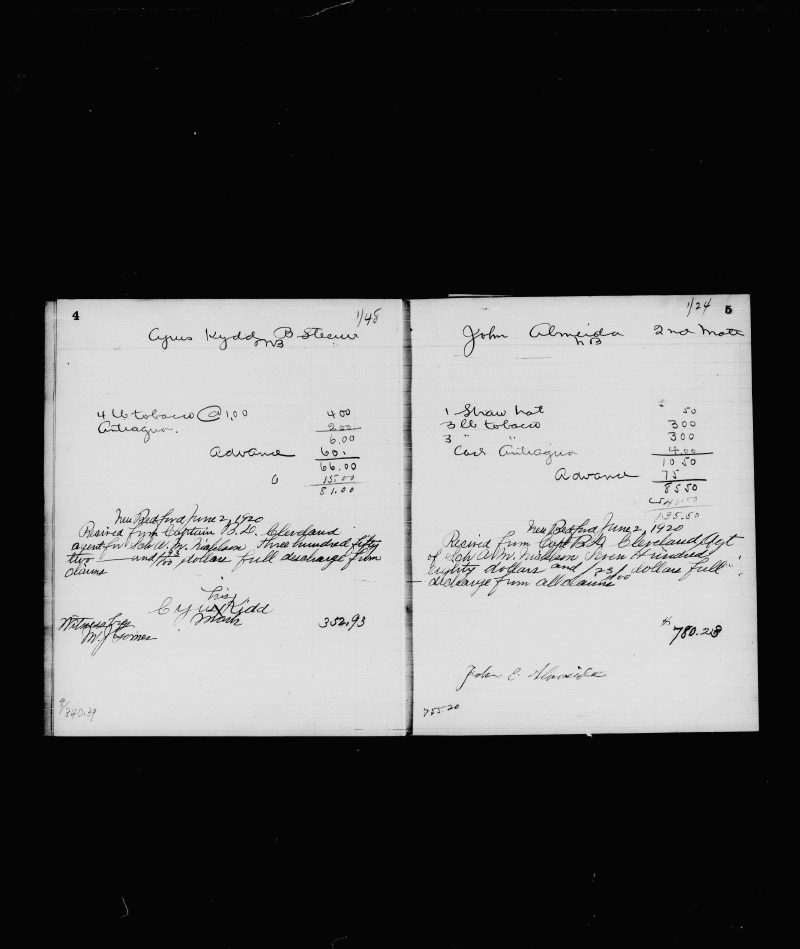 4
1/48
Cyrus Kydd B Steerer
NB
4 lb tobacco @ 1,00 4 00
Antiagua. 2 00
6,00
Advance 60.
66.00
15.00
81.00
New Bedford June 2, 1920
Recived from Captain B.D. Cleveland
agent for Sch A. M. Nicholson Three hundred fifty
two and 93/100 dollars full discharge from
claims
his
Cyrus X Kidd
mark
Witness
M. J. Gomes
352,93
340.39
1/24 5
John Almeida 2nd Mate
NB
1 Straw hat 50
3 lb tobacco 3 00
3 " " 3 00
Cash Antiagua 4.00
10 50
Advance 75
85 50
135.50
New Bedford June 2, 1920
Recived from Capt B.D. Cleveland Agt
of Sch A. M. Nicholson Seven Hundred
Eighty dollars and 28/100 dollars full
discharge from all claims
780.28
John E. Almeida
755 20